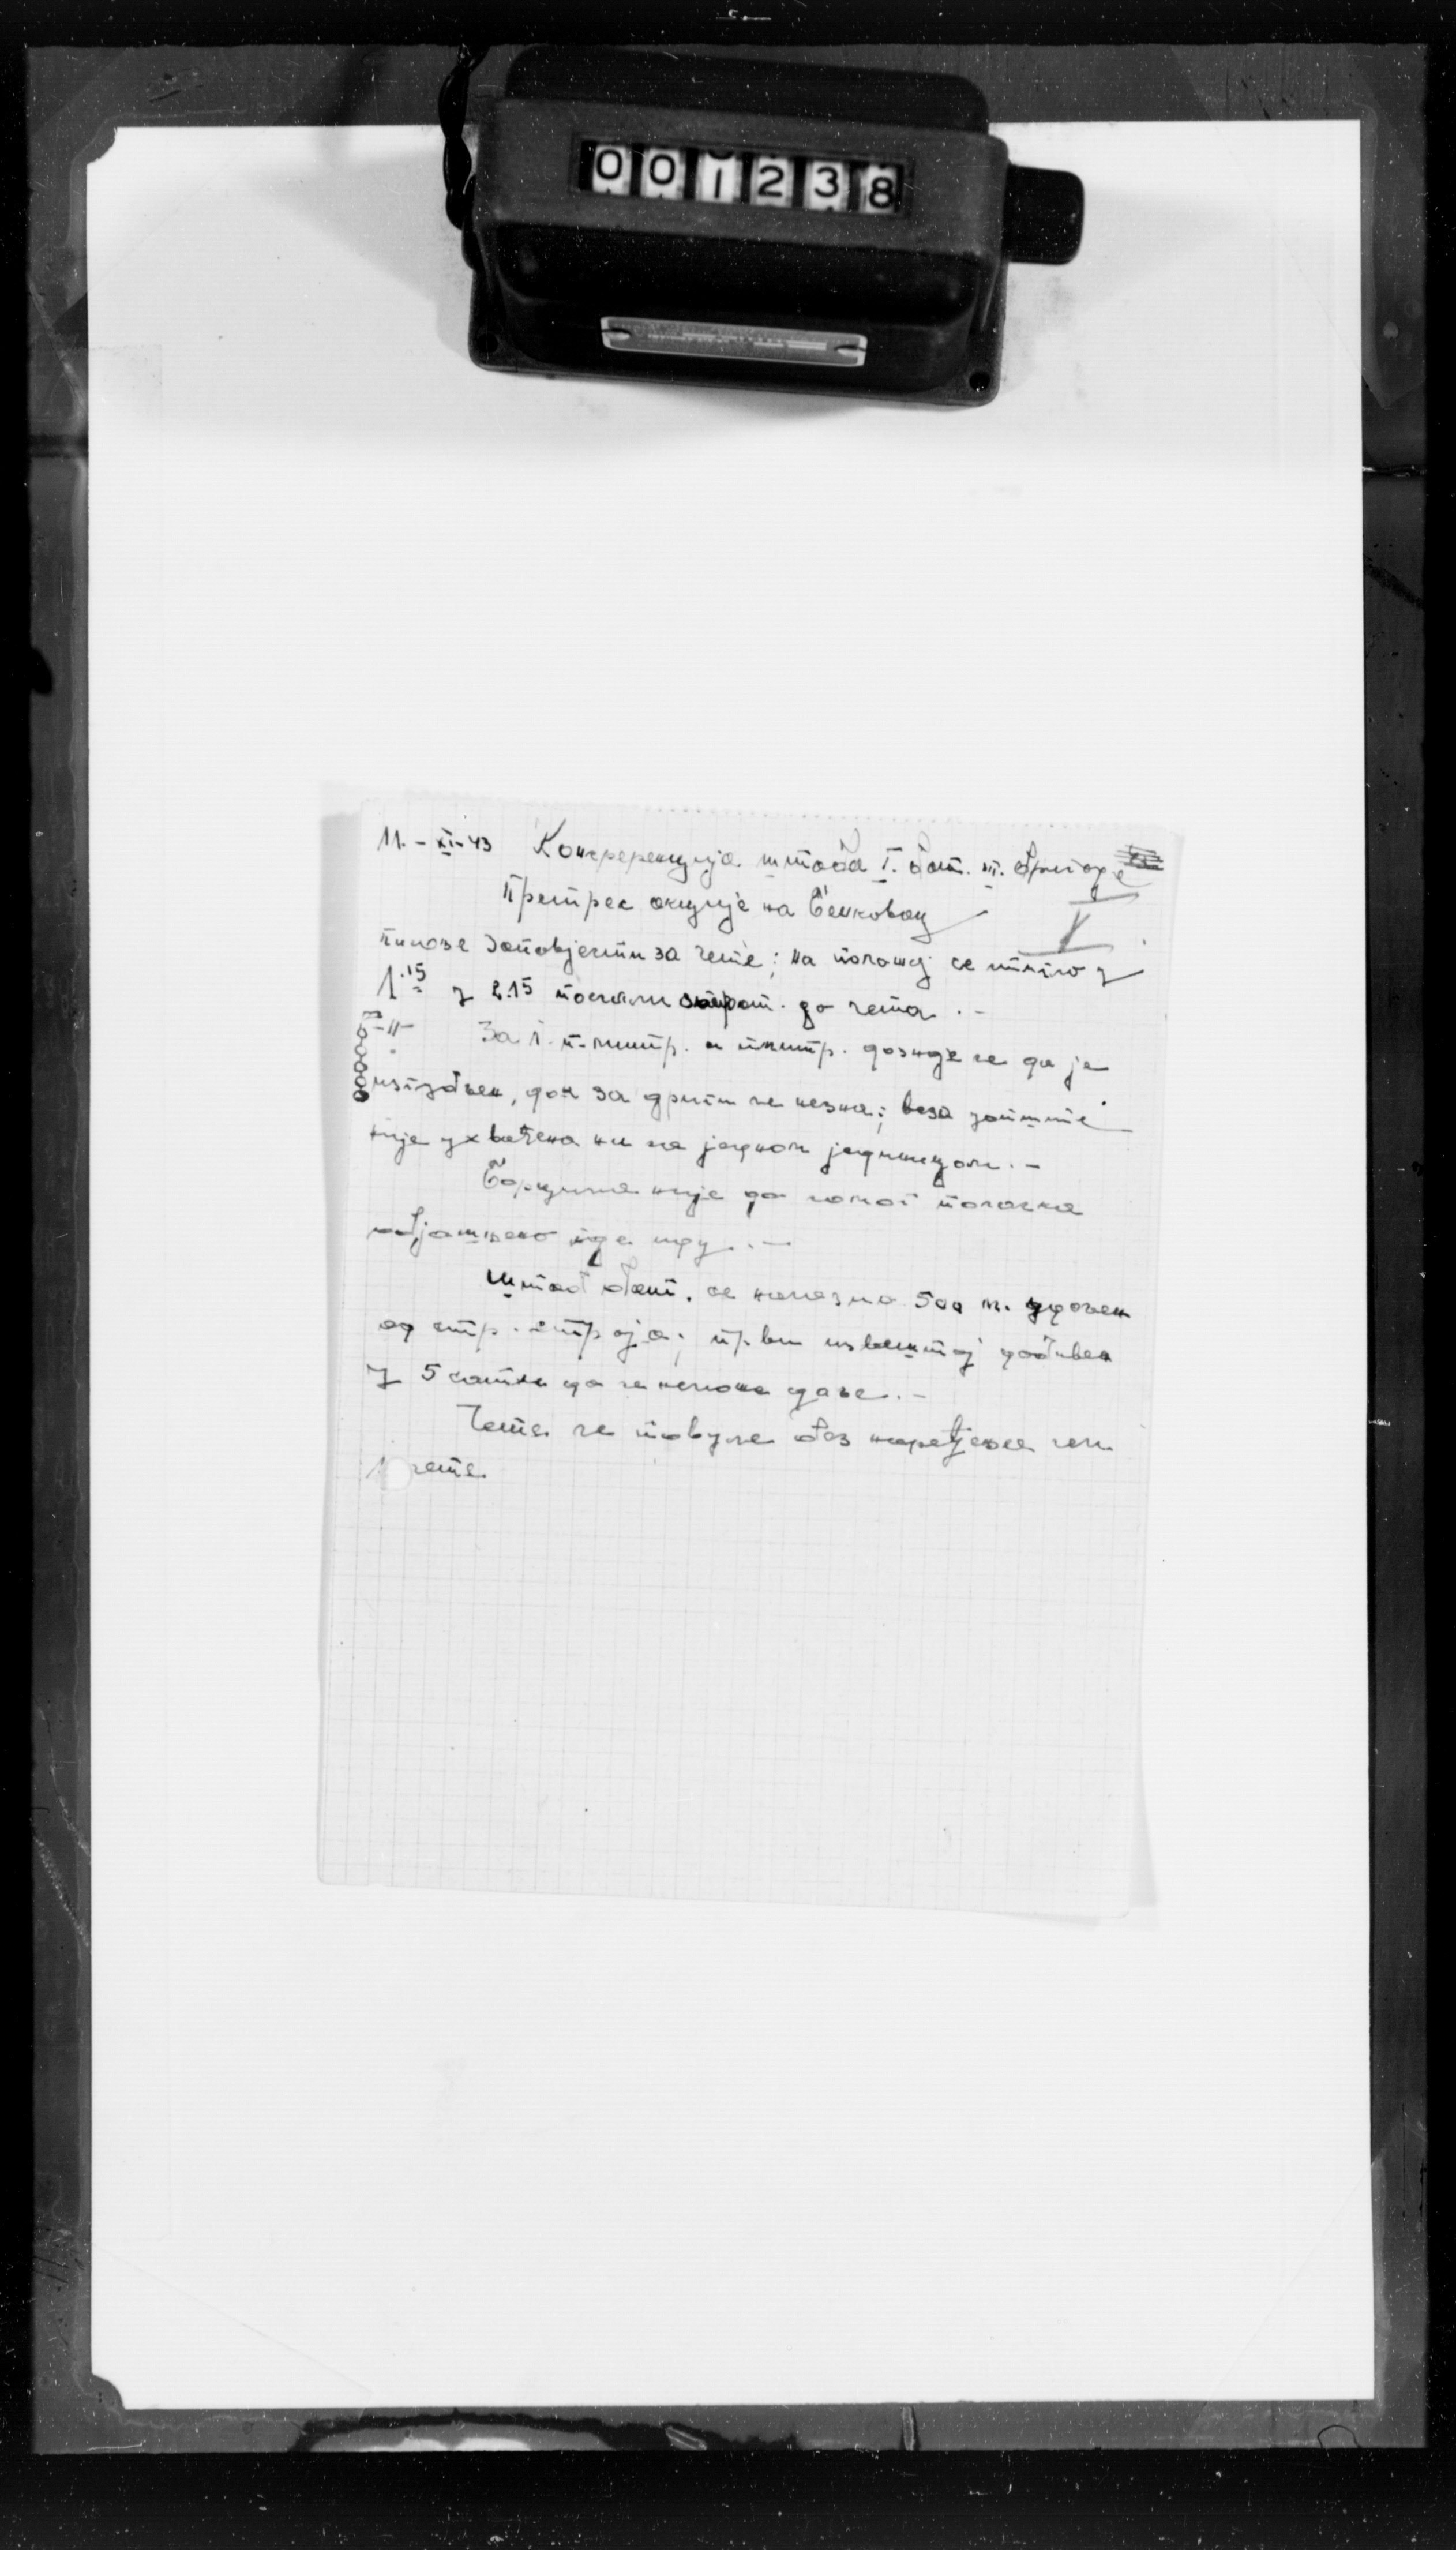 001238
11.-XI-43 Конференција штаба I. бат. III. бригаде
Претрес акције на Бенковац
V
заповјести за чете; на положај се стигло у
1.15 у 2.15 до чета.-
За 1. п. митр. и дознаје се да је
изгубљен, док за други се незна; веза уопште
није ухваћена ни са једном јединицом.-
Борцима није до поласка
објашњено гдје иду.-
Штаб бат. се налазио 500 м. удаљен
од стр. строја; први извештај добивен
у 5 сати да се неможе даље.-
Чета се повукла без наређења
чете.